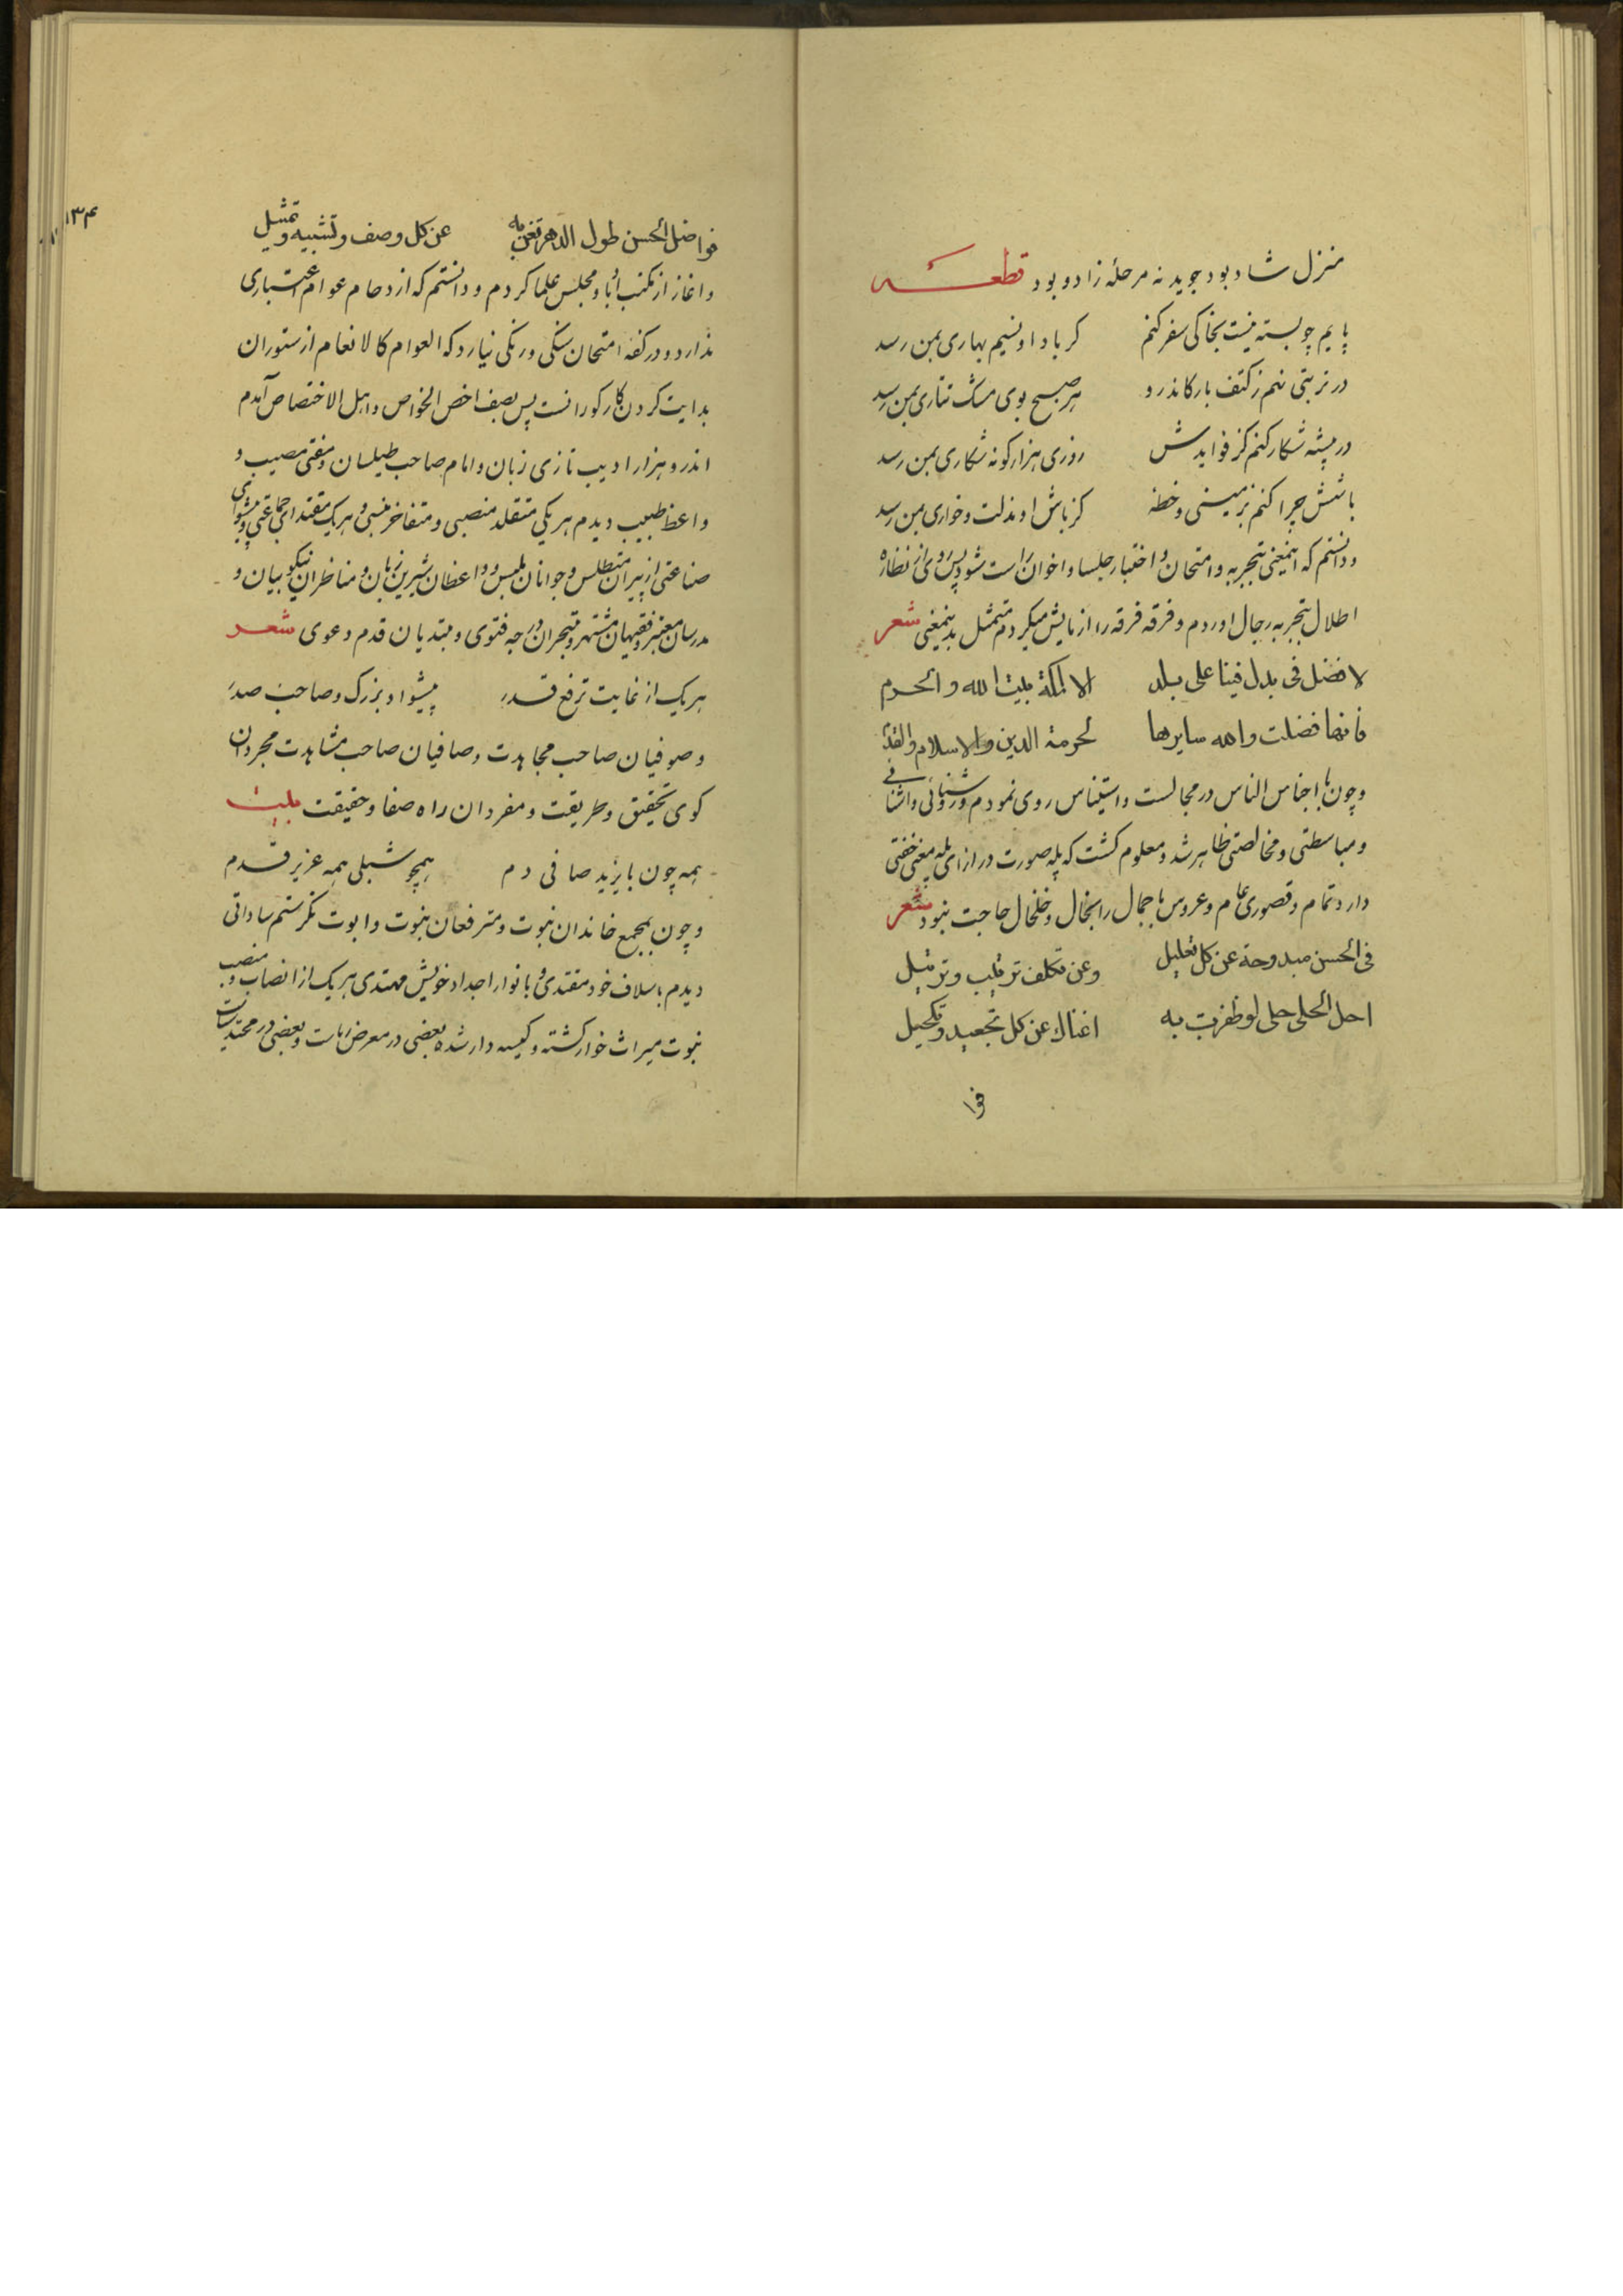 منزل شاد بود جوید نه مرحلهٔ زاد و بود قطعه
پایم چو بسته نیست بخاکی سفر کنم کز باد او نسیم بهاری بمن رسد
در تربتی نهم ز کتف بار کاندرو هر صبح بوی مشک تتاری بمن رسد
در بیشه شکار کنم کز فوایدش روزی هزار کونه شکاری بمن رسد
باشش چرا کنم بزمینی و خطه کز باش او مذلت و خواری بمن رسد
و دانستم که اینمعنی بتجربه و امتحان و اختبار جلسا و اخوان راست شود پس روی از نظاره
اطلال بتجربه رجال اوردم و فرقه فرقه را ازمایش میکردم متمثل بدینمعنی شعر
لا فضل فی بدل فینا علی بلد الا لمکة بیت الله والحرم
فانها فضلت والله سایرها لحرمة الدین والاسلام والقدم
و چون با اجناس الناس در مجالست و استیناس روی نمودم و روشنائی و اشنائی
و مباسطتی و مخالصتی ظاهر شد و معلوم کشت که پله صورت در ازای پله معنی خفتی
دارد تمام و قصوری عام و عروس با جمال را بخال و خلخال حاجت نبود شعر
فی الحسن مندوحة عن کل تعلیل وعن تکلف ترتیب وترتیل
احل الحلی حلی لو ظفرت به اغناك عن کل تجعید وتکحیل
فوا
۱۳۴
فواضل الحسن طول الدهر تغن به عن کل وصف وتشبیه وتمثیل
و اغاز از مکتب ادبا و مجلس علما کردم و دانستم که ازدحام عوام اعتباری
ندارد و در کفه امتحان سنکی و رنکی نیارد که العوام کالانعام از ستوران
بدایت کردن کار کورانست پس بصف اخص الخواص و اهل الاختصاص آمدم
اندرو هزار ادیب تازی زبان و امام صاحب طیلسان و مفتی مصیب و
واعظ طبیب دیدم هر یکی متقلد منصبی و متفاخر بنسبی و هر یک مقتدای جماعتی و پیشوای
صناعتی از پیران متطلس و جوانان ملبس و واعظان شیرین زبان و مناظران نیکو بیان و
مدرسان معتبر و فقیهان مشتهر و متبحران درجه فتوی و مبتدیان قدم دعوی شعر
هر یک از غایت ترفع قدر پیشوا و بزرک و صاحب صدر
و صوفیان صاحب مجاهدت و صافیان صاحب مشاهدت مجردان
کوی تحقیق و طریقت و مفردان راه صفا و حقیقت بیت
همه چون بایزید صافی دم همچو شبلی همه عزیز قدم
و چون بمجمع خاندان نبوت و مترفعان بنوت و ابوت نکرستم ساداتی
دیدم باسلاف خود مقتدی و بانوار اجداد خویش مهتدی هر یک از انصاب و منصب
نبوت میراث خوار کشته و کیسه دار شده بعضی در معرض و بعضی در